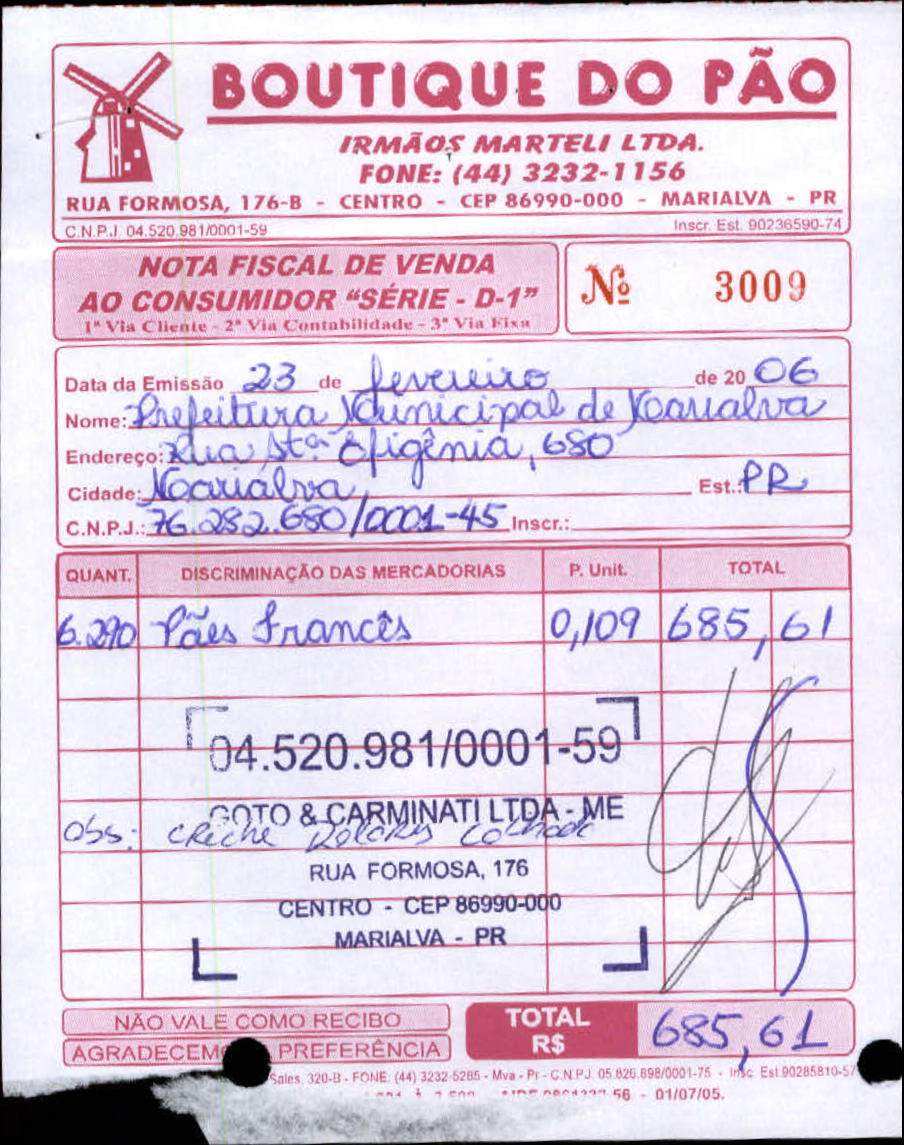 BOUTIQUE DO PÃO
IRMÃOS MARTELI LTDA.
FONE: (44) 3232-1156
RUA FORMOSA, 176-B - CENTRO - CEP 86990-000 - MARIALVA - PR
C.N.P.J. 04.520.981/0001-59 Inscr. Est. 90236590-74
NOTA FISCAL DE VENDA
AO CONSUMIDOR "SÉRIE - D-1"
1ª Via Cliente - 2ª Via Contabilidade - 3ª Via Fixa
Nº 3009
Data da Emissão 23 de fevereiro de 2006
Nome: Prefeitura Municipal de Marialva
Endereço: Rua Stª Efigênia, 680
Cidade: Marialva Est.: PR
C.N.P.J.: 76.282.680/0001-45 Inscr.:
QUANT. DISCRIMINAÇÃO DAS MERCADORIAS P. Unit. TOTAL
6.290 Pães Francês 0,109 685,61
04.520.981/0001-59
GOTO & CARMINATI LTDA - ME
Obs: Creche
RUA FORMOSA, 176
CENTRO - CEP 86990-000
MARIALVA - PR
NÃO VALE COMO RECIBO
AGRADECEM PREFERÊNCIA
TOTAL
R$ 685,61
Sales, 320-B - FONE: (44) 3232-5285 - Mva - Pr - C.N.P.J. 05.826.898/0001-75 - Insc. Est.90285810-57
56 - 01/07/05.